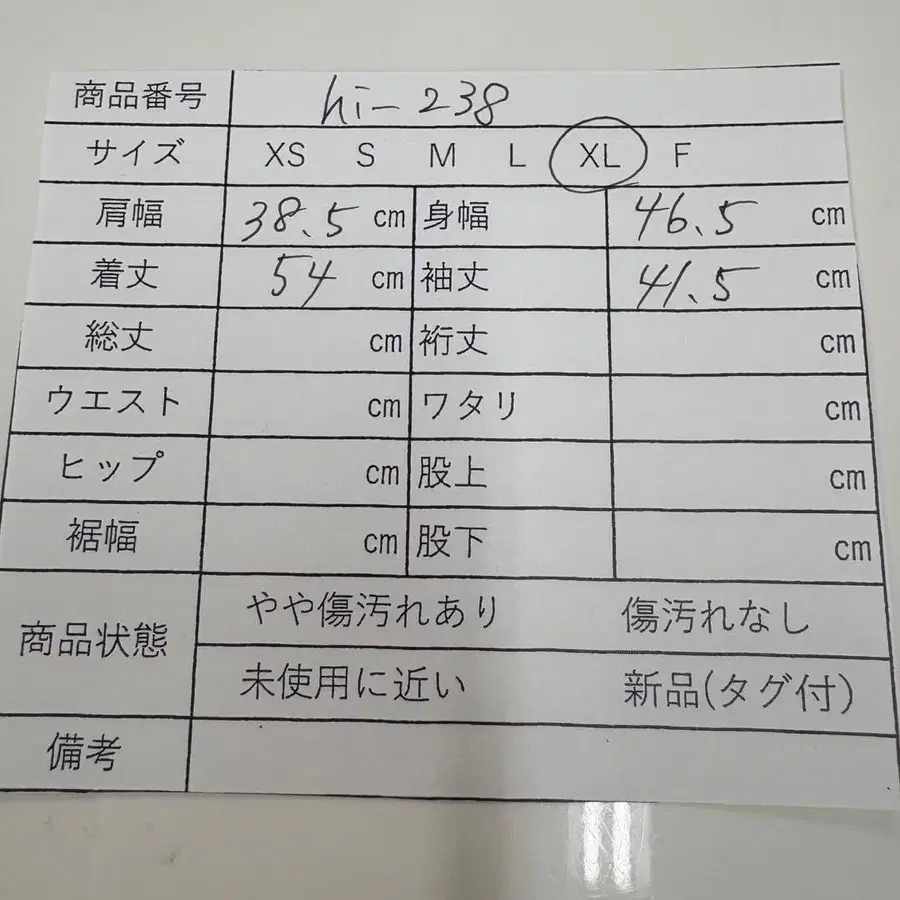 商品番号 hi-238
サイズ XS S M L XL F
肩幅 38.5 cm 身幅 46.5 cm
着丈 54 cm 袖丈 41.5 cm
総丈 cm 裄丈 cm
ウエスト cm ワタリ cm
ヒップ cm 股上 cm
裾幅 cm 股下 cm
商品状態 やや傷汚れあり 傷汚れなし
未使用に近い 新品(タグ付)
備考